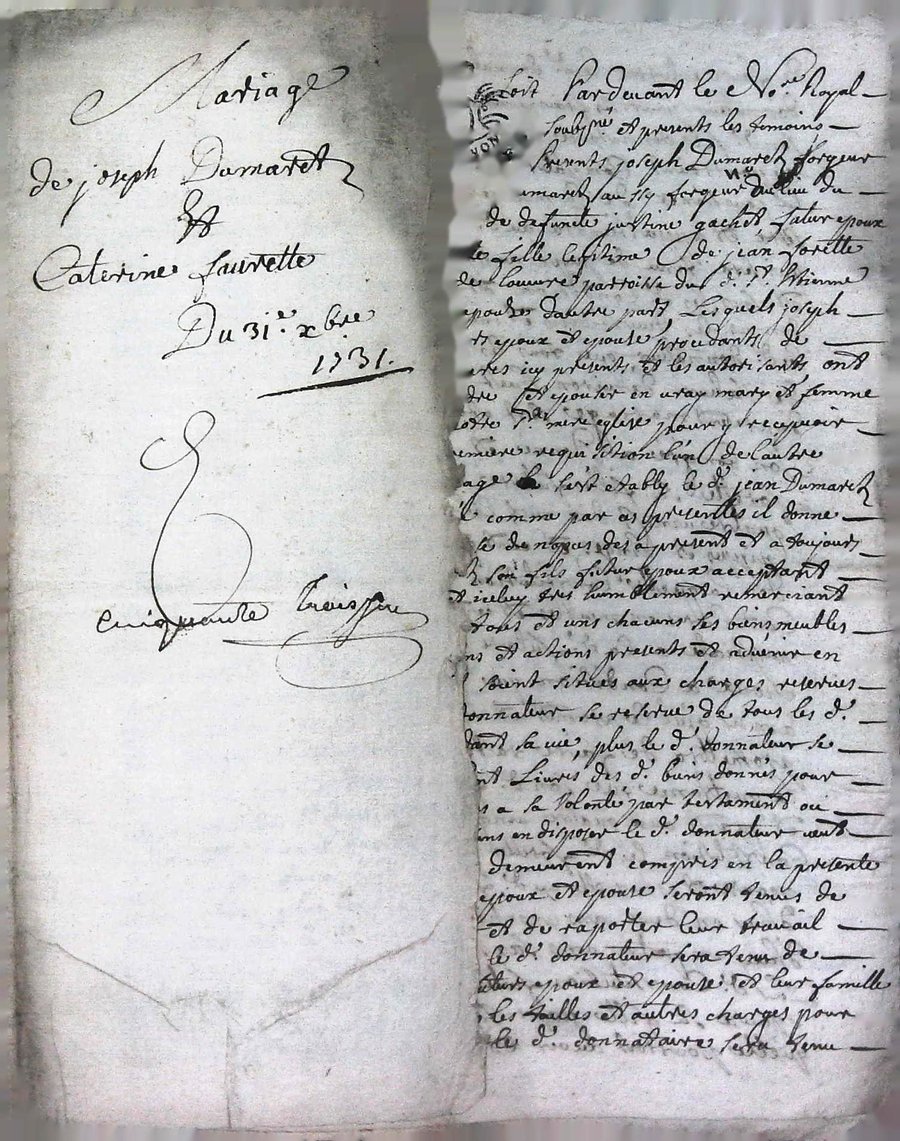 Mariage
de joseph Dumaretz
Et
Caterine faurette
Du 31e. xbre
1731.
cinquante Trois
soit Pardevant le Nore. Royal
soubsne. et presents les temoins
presents joseph Dumaretz forgeur
umaretz aussy forgeur du lieu du
de defuncte justine gachet, futur epoux
fille legitime de jean forette
de louvure parroisse du d. St. Etienne
epouse dautre part, Lesquels joseph
epoux et epouse procedants de
eres icy presents et les autorisants, ont
dre et epouser en vray mary et femme
notre Ste. mere eglise pour y recepvoir
emiere requisition lun de lautre
age sest etably le d. jean Dumaretz
comme par ces presentes il donne
de nopces des a present et a toujours
son fils futur epoux acceptant
et iceluy tres humblement remerciant
tous et uns chacuns ses biens meubles
ns et actions presents et advenir en
soient situés aux charges reserves
donnateur se reserve de tous les d.
dant sa vie, plus le d. donnateur se
nt Livres des d. biens donnés pour
s a sa volonté par testament ou
ins en disposer le d. donnateur veut
demeurent compris en la presente
epoux et epouse seront tenus de
et de raporter leur travail
le d. donnateur sera tenu de
futurs epoux et epouse et leur famille
les tailles et autres charges pour
le d. donnataire sera tenu